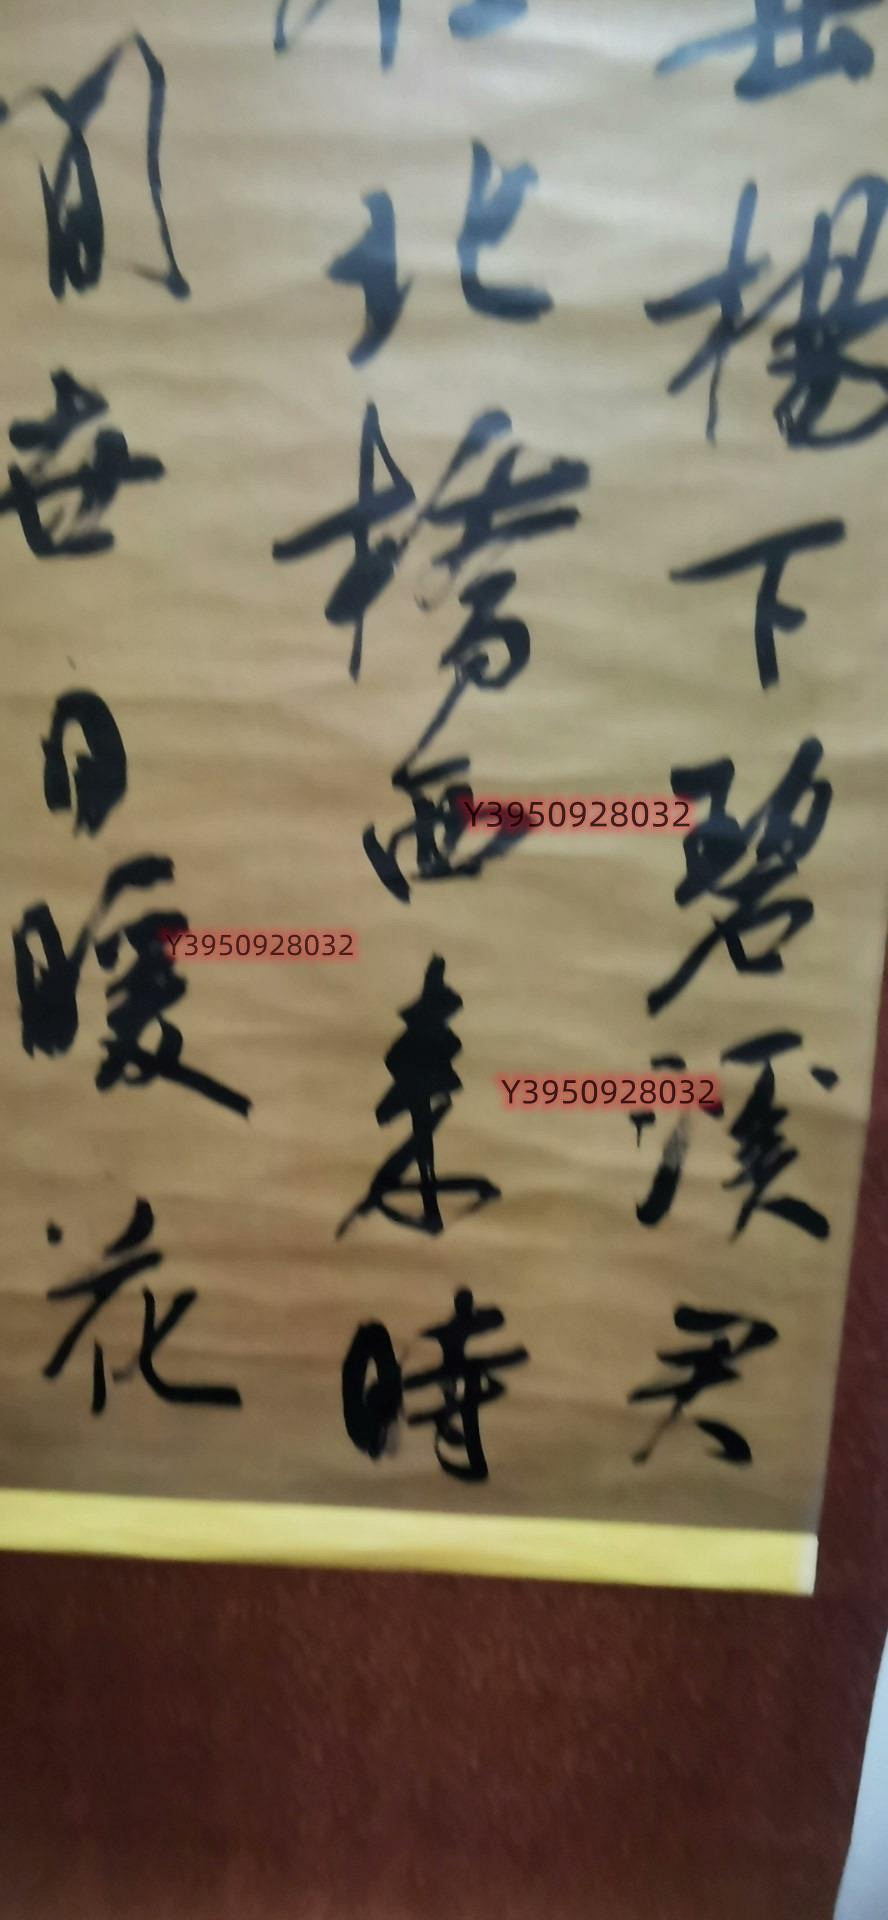 垂楊下碧溪君
北橋西來時
間世日暖花
Y3950928032
Y3950928032
Y3950928032